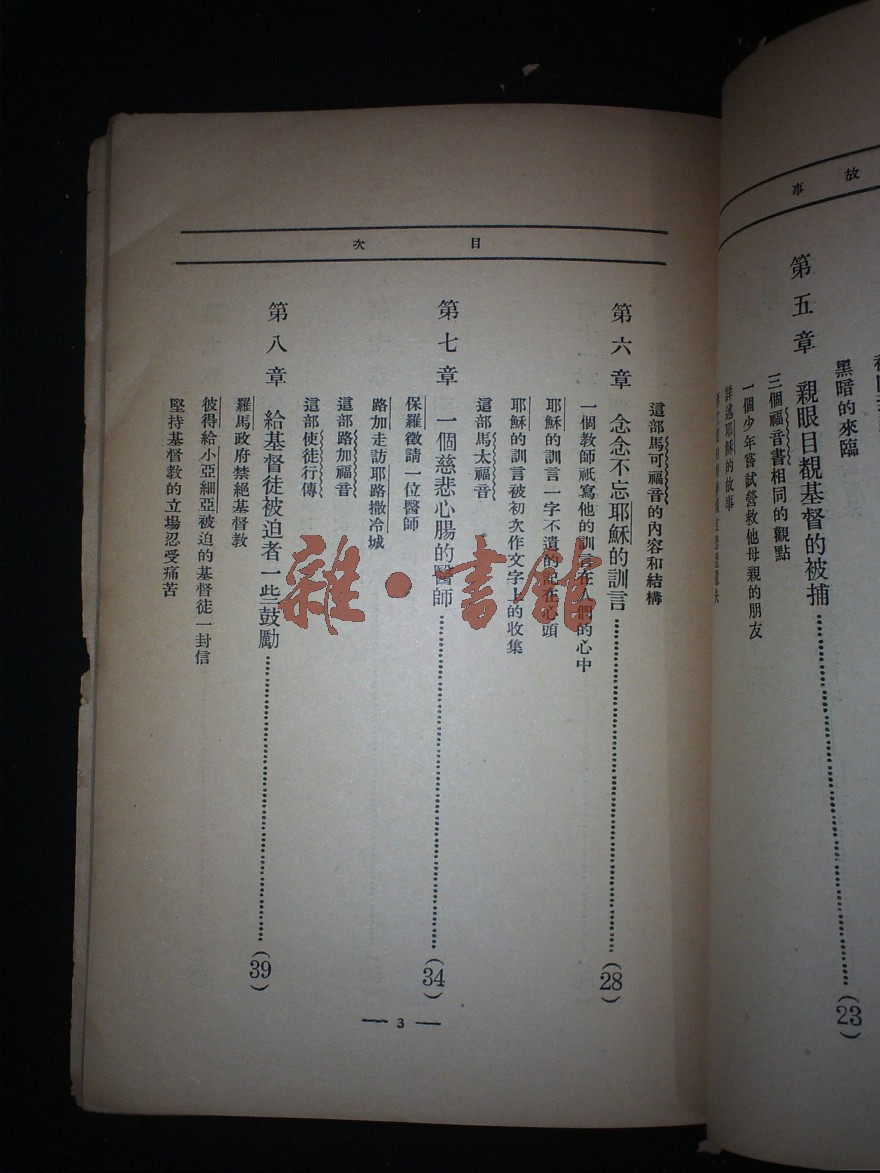 故事
黑暗的來臨
第五章 親眼目覩基督的被捕……(23)
三個福音書相同的觀點
一個少年嘗試營救他母親的朋友
詳述耶穌的故事
目次
這部馬可福音的內容和結構
第六章 念念不忘耶穌的訓言……(28)
一個教師祇寫他的訓言在人們的心中
耶穌的訓言一字不遺的記在心頭
耶穌的訓言被初次作文字上的收集
這部馬太福音
第七章 一個慈悲心腸的醫師……(34)
保羅徵請一位醫師
路加走訪耶路撒冷城
這部路加福音
這部使徒行傳
第八章 給基督徒被迫者一些鼓勵……(39)
羅馬政府禁絕基督教
彼得給小亞細亞被迫的基督徒一封信
堅持基督教的立場忍受痛苦
— 3 —
雜·書館